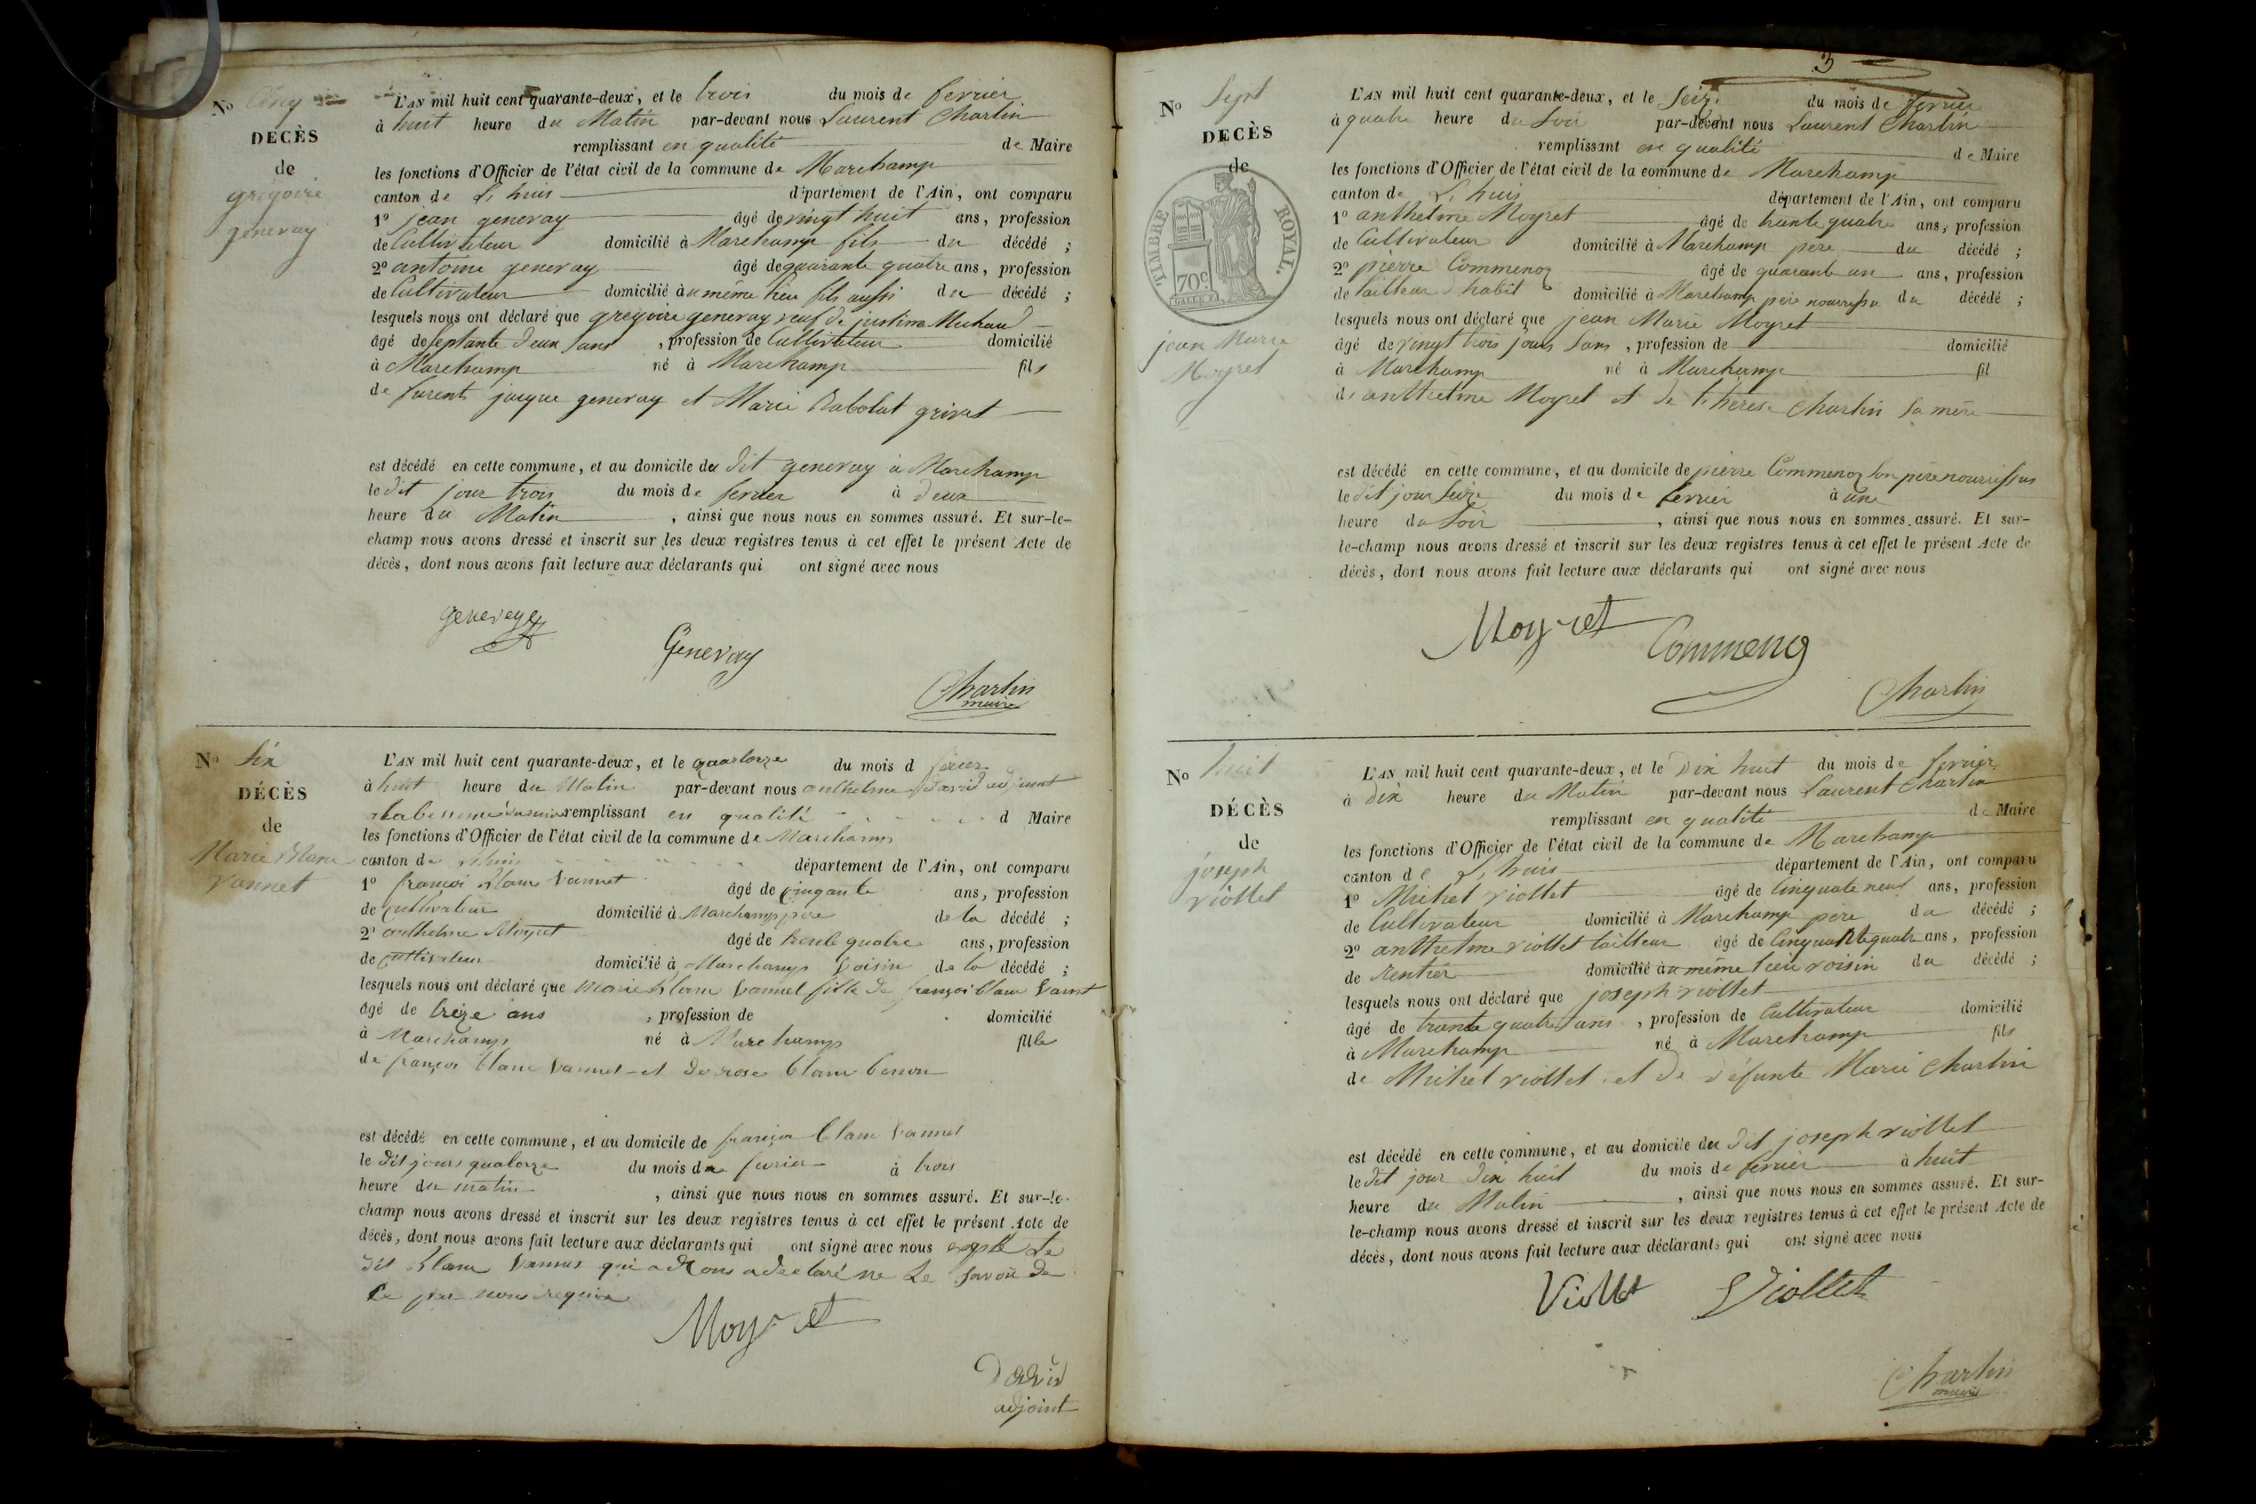 No Cinq
DECÈS
de
gregoire
genevay
L'AN mil huit cent quarante-deux, et le trois du mois de fevrier
à huit heure du Matin par-devant nous Laurent Charlin
remplissant en qualité de Maire
les fonctions d'Officier de l'état civil de la commune de Marchamp
canton de L'huis département de l'Ain, ont comparu
1o jean genevay âgé de vingt huit ans, profession
de Cultivateur domicilié à Marchamp fils du décédé ;
2o antoine genevay âgé de quarante quatre ans, profession
de Cultivateur domicilié à u même lieu fils aussi du décédé ;
lesquels nous ont déclaré que gregoire genevay veuf de justine Michaud
âgé de septante deux ans, profession de Cultivateur domicilié
à Marchamp né à Marchamp fils
de jacque genevay et Marie Rabolat grivet
est décédé en cette commune, et au domicile du dit genevay à Marchamp
le dit jour trois du mois de fevrier à deux
heure du Matin, ainsi que nous nous en sommes assuré. Et sur-le-
champ nous avons dressé et inscrit sur les deux registres tenus à cet effet le présent Acte de
décès, dont nous avons fait lecture aux déclarants qui ont signé avec nous
Genevay
Charlin
maire
No Six
DÉCÈS
de
Marie Blanc
Vannet
L'AN mil huit cent quarante-deux, et le quatorze du mois d fevrier
à huit heure du Matin par-devant nous anthelme David adjoint
remplissant en qualité d Maire
les fonctions d'Officier de l'état civil de la commune de Marchamp
canton de Lhuis département de l'Ain, ont comparu
1o françoi Blanc Vannet âgé de cinquante ans, profession
de cultivateur domicilié à Marchamp père de la décédé ;
2o anthelme Moyret âgé de trente quatre ans, profession
de cultivateur domicilié à Marchamp voisin de la décédé ;
lesquels nous ont déclaré que Marie Blanc Vannet fille de françoi Blanc Vannet
âgé de treize ans, profession de domicilié
à Marchamp né à Marchamp fille
de françoi blanc Vannet et de rose blanc
est décédé en cette commune, et au domicile de françoi blanc Vannet
le dit jours quatorze du mois de fevrier à trois
heure du matin, ainsi que nous nous en sommes assuré. Et sur-le-
champ nous avons dressé et inscrit sur les deux registres tenus à cet effet le présent Acte de
décès, dont nous avons fait lecture aux déclarants qui ont signé avec nous excepté Le
dit Blanc Vannet qui a declaré ne Le Savoir de
Ce par nous requis
Moyret
David
adjoint
3
No Sept
DECÈS
de
TIMBRE ROYAL.
70c
jean Marie
Moyret
L'AN mil huit cent quarante-deux, et le Seize du mois de fevrier
à quatre heure du Soir par-devant nous Laurent Charlin
remplissant en qualité de Maire
les fonctions d'Officier de l'état civil de la commune de Marchamp
canton de L'huis département de l'Ain, ont comparu
1o anthelme Moyret âgé de trante quatre ans, profession
de Cultivateur domicilié à Marchamp pere du décédé ;
2o pierre Commenoz âgé de quarante un ans, profession
de tailleur d'habit domicilié à Marchamp père du décédé ;
lesquels nous ont déclaré que jean Marie Moyret
âgé de vingt trois jours, profession de domicilié
à Marchamp né à Marchamp fil
de anthelme Moyret et de therese Charlin sa mère
est décédé en cette commune, et au domicile de pierre Commenoz son père
le dit jour seize du mois de fevrier à une
heure du Soir, ainsi que nous nous en sommes assuré. Et sur-
le-champ nous avons dressé et inscrit sur les deux registres tenus à cet effet le présent Acte de
décès, dont nous avons fait lecture aux déclarants qui ont signé avec nous
Moyret
Charlin
No huit
DÉCÈS
de
joseph
viollet
L'AN mil huit cent quarante-deux, et le Dix huit du mois de fevrier
à Dix heure du Matin par-devant nous Laurent Charlin
remplissant en qualité de Maire
les fonctions d'Officier de l'état civil de la commune de Marchamp
canton de L'huis département de l'Ain, ont comparu
1o Michel viollet âgé de Cinquate neuf ans, profession
de Cultivateur domicilié à Marchamp père du décédé ;
2o anthelme viollet tailleur âgé de Cinquante quatre ans, profession
de Rentier domicilié à u même lieu voisin du décédé ;
lesquels nous ont déclaré que joseph viollet
âgé de trante quatre ans, profession de Cultivateur domicilié
à Marchamp né à Marchamp fils
de Michel viollet et de défunte Marie Charlin
est décédé en cette commune, et au domicile du dit joseph viollet
le dit jour dix huit du mois de fevrier à huit
heure du Matin, ainsi que nous nous en sommes assuré. Et sur-
le-champ nous avons dressé et inscrit sur les deux registres tenus à cet effet le présent Acte de
décès, dont nous avons fait lecture aux déclarants qui ont signé avec nous
Viollet Viollet
Charlin
maire